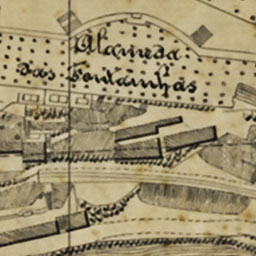 Alameda
das Fontainhas